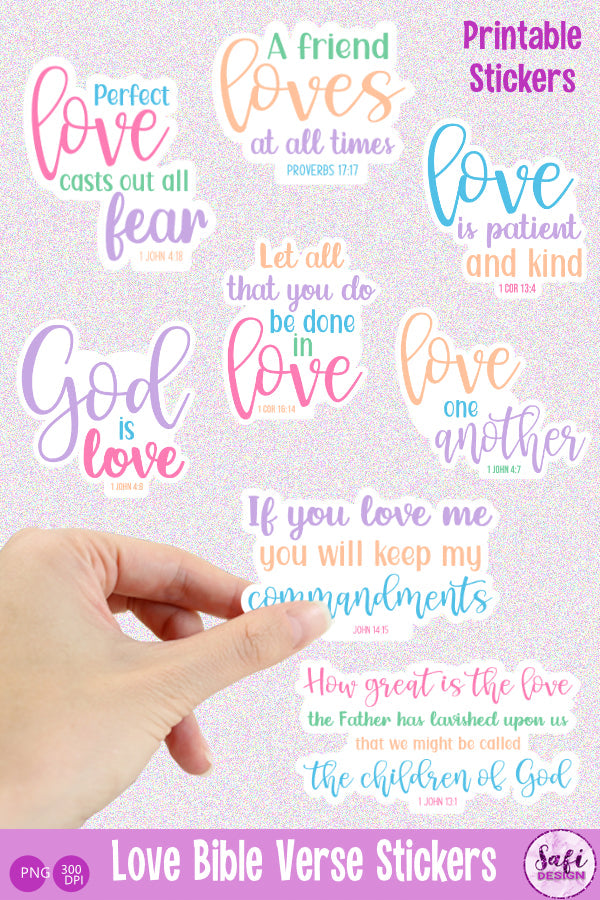 Printable
Stickers
A friend
loves
at all times
PROVERBS 17:17
Perfect
love
casts out all
fear
1 JOHN 4:18
love
is patient
and kind
1 COR 13:4
Let all
that you do
be done
in
love
1 COR 16:14
God
is
love
1 JOHN 4:8
love
one
another
1 JOHN 4:7
If you love me
you will keep my
commandments
JOHN 14:15
How great is the love
the Father has lavished upon us
that we might be called
the children of God
1 JOHN 13:1
PNG
300
DPI
Love Bible Verse Stickers
Safi
DESIGN